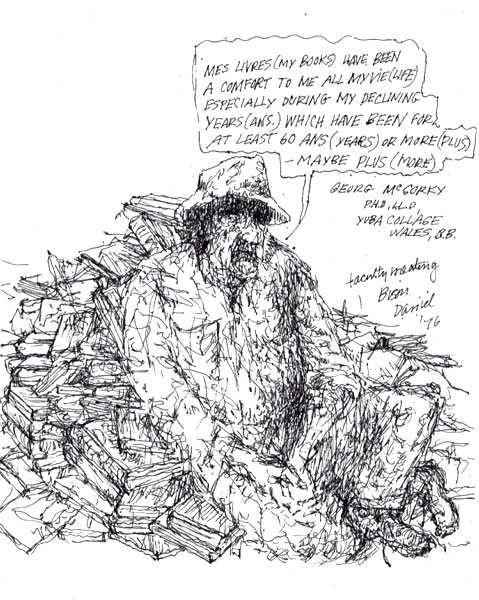 MES LIVRES (MY BOOKS) HAVE BEEN
A COMFORT TO ME ALL MY VIE (LIFE)
ESPECIALLY DURING MY DECLINING
YEARS (ANS.) WHICH HAVE BEEN FOR
AT LEAST 60 ANS (YEARS) OR MORE (PLUS)
– MAYBE PLUS (MORE)
GEORG McGORKY
P.H.D., LL.D.,
YUBA COLLAGE
WALES, G.B.
faculty meeting
Daniel
'76